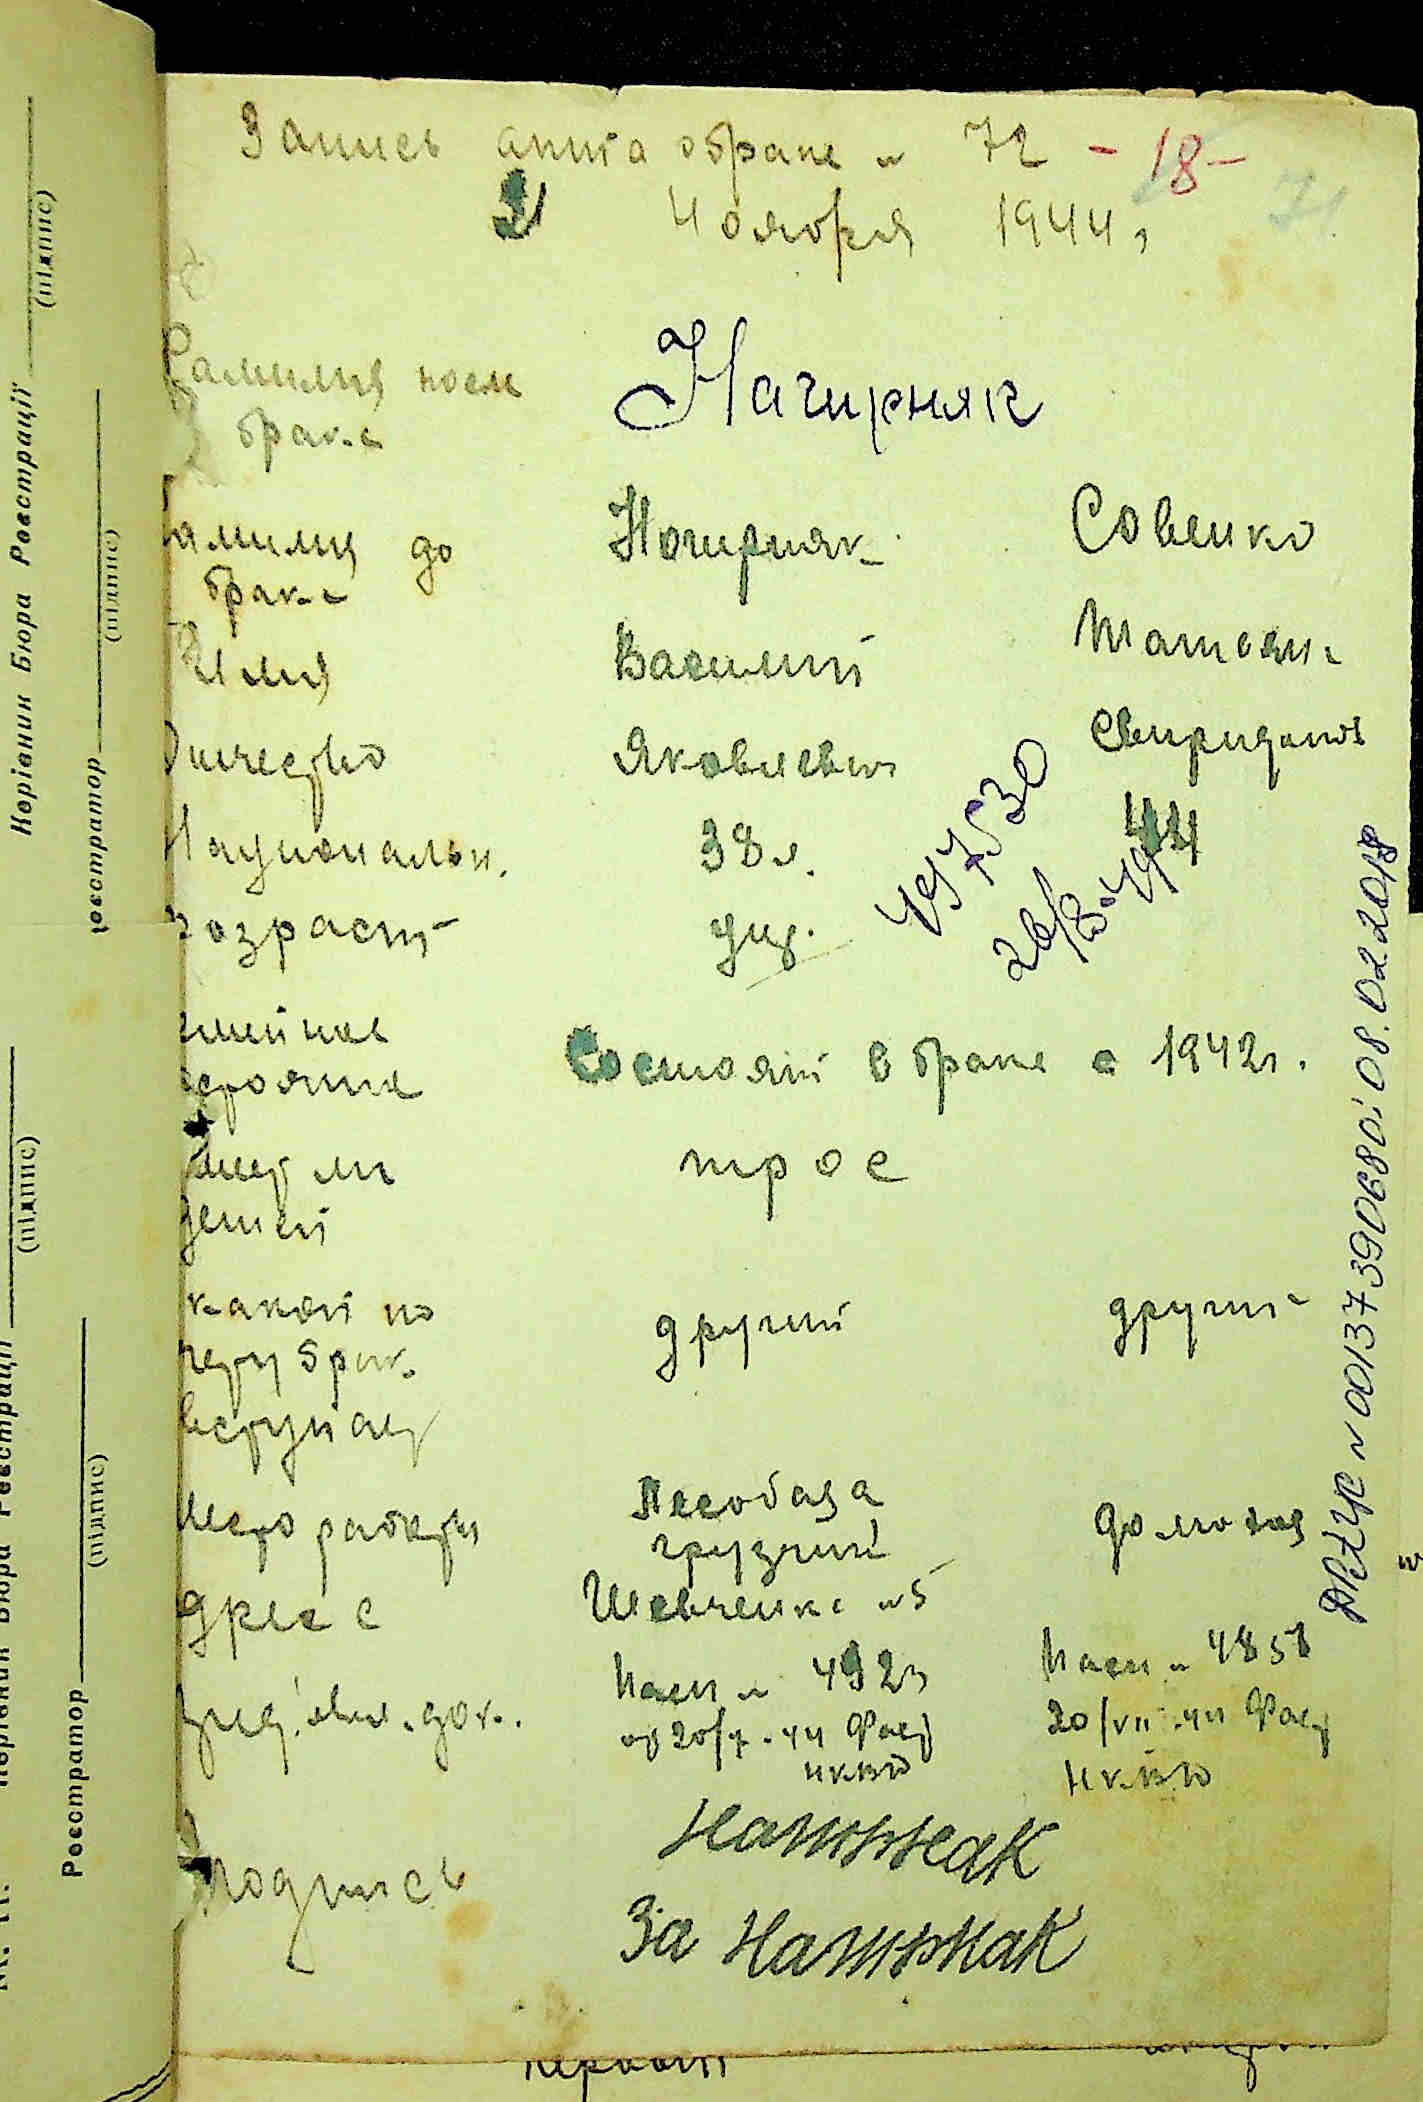 Запись акта о браке № 72 - 18 -
71
2 Ноября 1944 г
Фамилия посл брака
Нагирняк
Фамилия до брака
Нагирняк Совенко
Имя Василий Татьяна
Отчество Яковлевич Свиридовн
Национальн. 38 л. 44
возраст укр.
497530
26/8.49
семейное
состояние Состоят в браке с 1942 г.
имеет ли
детей трое
какой по другий другий
счету брак
вступает
место работы Лесобаза грузчик домохоз
Адресс Шевченко № 5
пред'явл. док.
Пасп № 4923
от 20/7.44 Фаст
НКВД
Пасп № 4858
20/VII.44 Фаст
НКВД
подпись
Нагирняк
За Нагирняк
ДРАЦС № 00137390680 і 08.02.2018
Керівник Бюра Реєстрації
(підпис)
Реєстратор
(підпис)
Керівник Бюра Реєстрації
(підпис)
Реєстратор
(підпис)
М. П.
первый